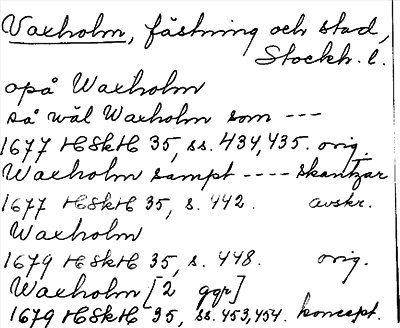 Vaxholm, fästning och stad,
Stockh. l.
opå Waxholm
så wäl Waxholm som ---
1677 HSkH 35, ss. 434, 435. orig.
Waxholm sampt ---- skantzar
1677 HSkH 35, s. 442. avskr.
Waxholm
1679 HSkH 35, s. 448. orig.
Waxholm [2 ggr]
1679 HSkH 35, ss. 453, 454. koncept.